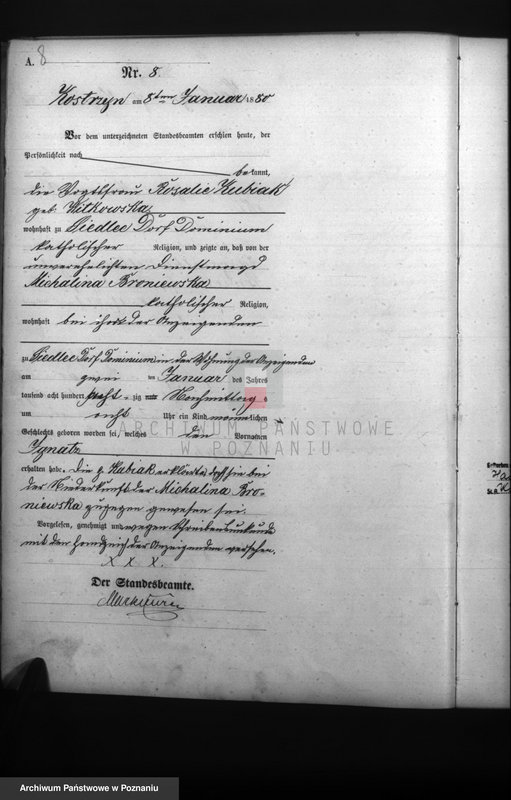 A. 8
Nr. 8
Kostrzyn am 8ten Januar 1880
Vor dem unterzeichneten Standesbeamten erschien heute, der
Persönlichkeit nach
bekannt,
die Vogtfrau Rosalie Kubiak
geb. Witkowska
wohnhaft zu Siedlec Dorf Dominium
katholischer Religion, und zeigte an, daß von der
unverehelichten Dienstmagd
Michalina Broniewska
katholischer Religion,
wohnhaft bei der Anzeigenden
zu Siedlec Dorf Dominium in der Wohnung der Anzeigenden
am zwei ten Januar des Jahres
tausend acht hundert acht zig Nachmittags
um acht Uhr ein Kind männlichen
Geschlechts geboren worden sei, welches den Vornamen
Ignatz
erhalten habe. Die p. Kubiak erklärte, daß sie bei
der Niederkunft der Michalina Bro-
niewska zugegen gewesen sei.
Vorgelesen, genehmigt und wegen Schreibensunkunde
mit dem Handzeichen der Anzeigenden versehen.
x x x.
Der Standesbeamte.
ARCHIWUM PAŃSTWOWE
W POZNANIU
Archiwum Państwowe w Poznaniu